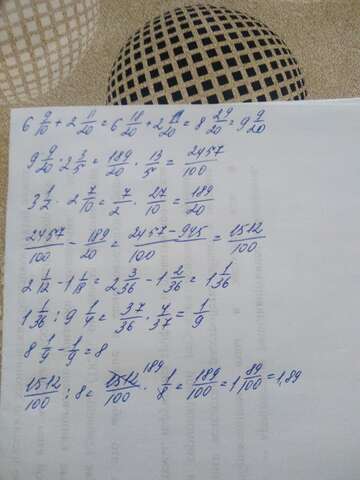 6 9/10 + 2 11/20 = 6 18/20 + 2 11/20 = 8 29/20 = 9 9/20
9 9/20 · 2 3/5 = 189/20 · 13/5 = 2457/100
3 1/2 · 2 7/10 = 7/2 · 27/10 = 189/20
2457/100 - 189/20 = 2457-945/100 = 1512/100
2 1/12 - 1 1/18 = 2 3/36 - 1 2/36 = 1 1/36
1 1/36 : 9 1/4 = 37/36 · 4/37 = 1/9
8 1/9 - 1/9 = 8
1512/100 : 8 = 1512 189/100 · 1/8 = 189/100 = 1 89/100 = 1,89